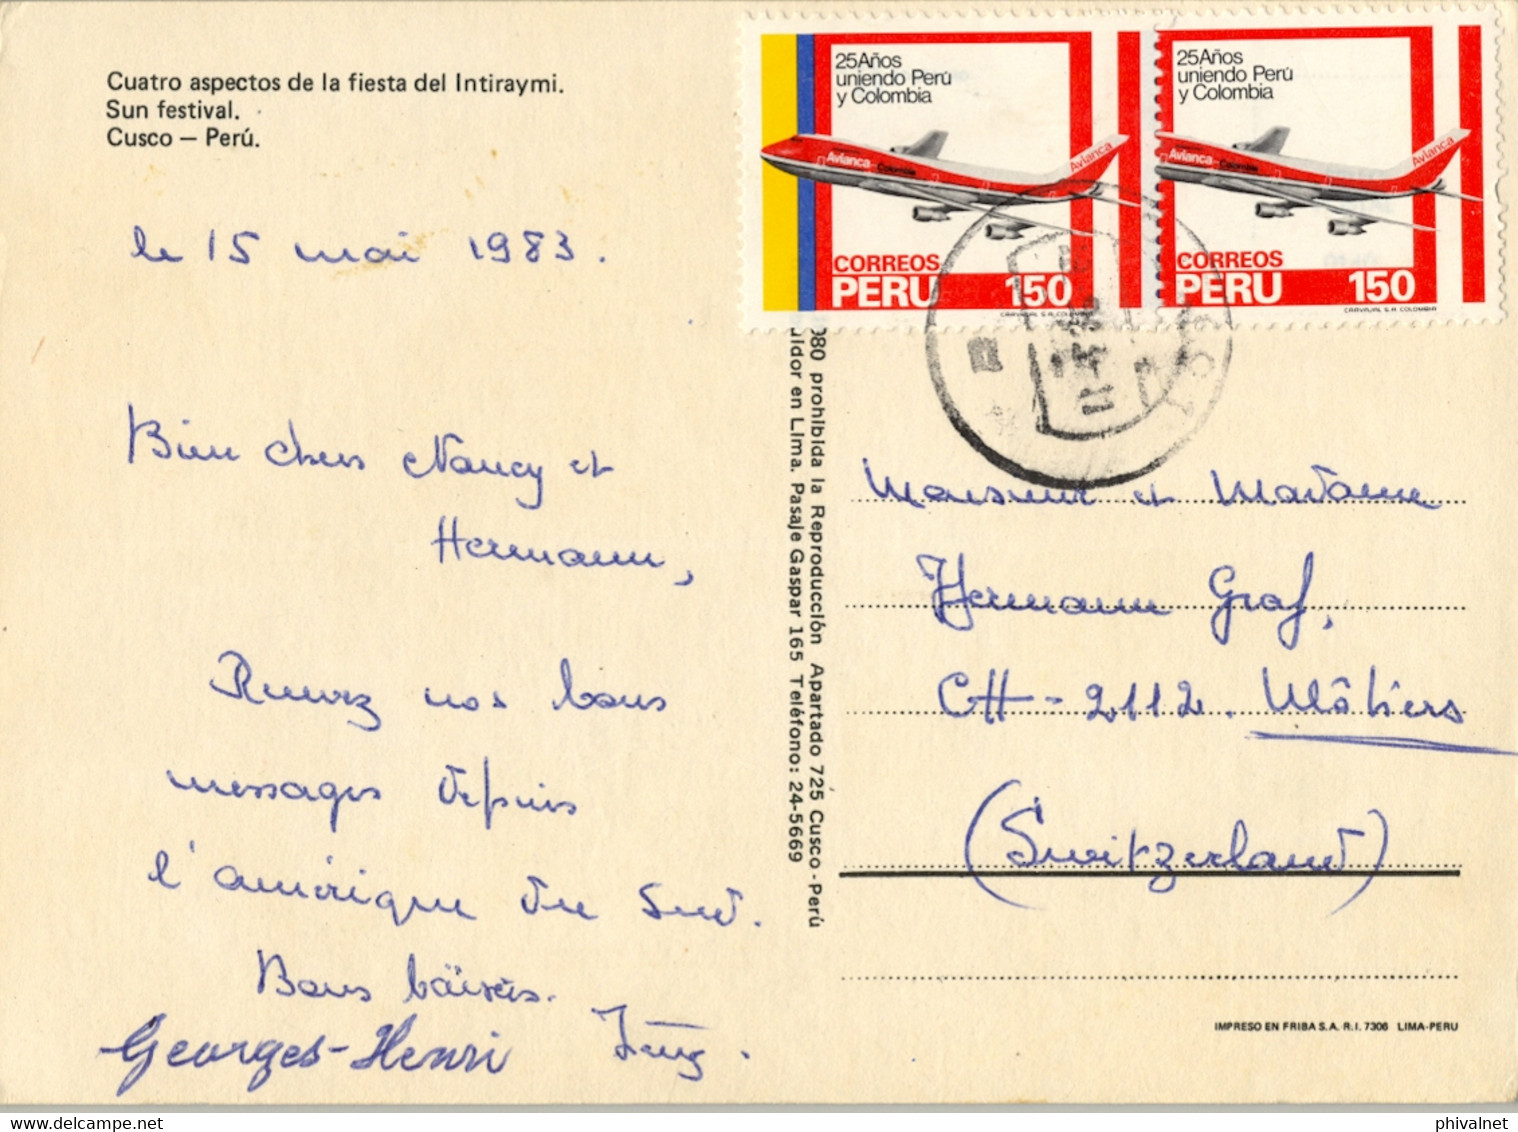 Cuatro aspectos de la fiesta del Intiraymi.
Sun festival.
Cusco — Perú.
le 15 mai 1983.
Bien chers Nancy et
Hermann,
Recevez nos bons
messages depuis
l'amérique du Sud.
Bons baisers.
Georges-Henri
25 Años
uniendo Perú
y Colombia
Avianca Colombia
Avianca
CORREOS
PERU 150
CARVAJAL S.A. COLOMBIA
25 Años
uniendo Perú
y Colombia
Avianca Colombia
Avianca
CORREOS
PERU 150
CARVAJAL S.A. COLOMBIA
980 prohibida la Reproducción Apartado 725 Cusco - Perú
uidor en Lima. Pasaje Gaspar 165 Teléfono: 24-5669
Monsieur et Madame
Hermann Graf,
CH-2112. Môtiers
(Switzerland)
IMPRESO EN FRIBA S.A. R.I. 7306 LIMA-PERU
delcampe.net
phivalnet